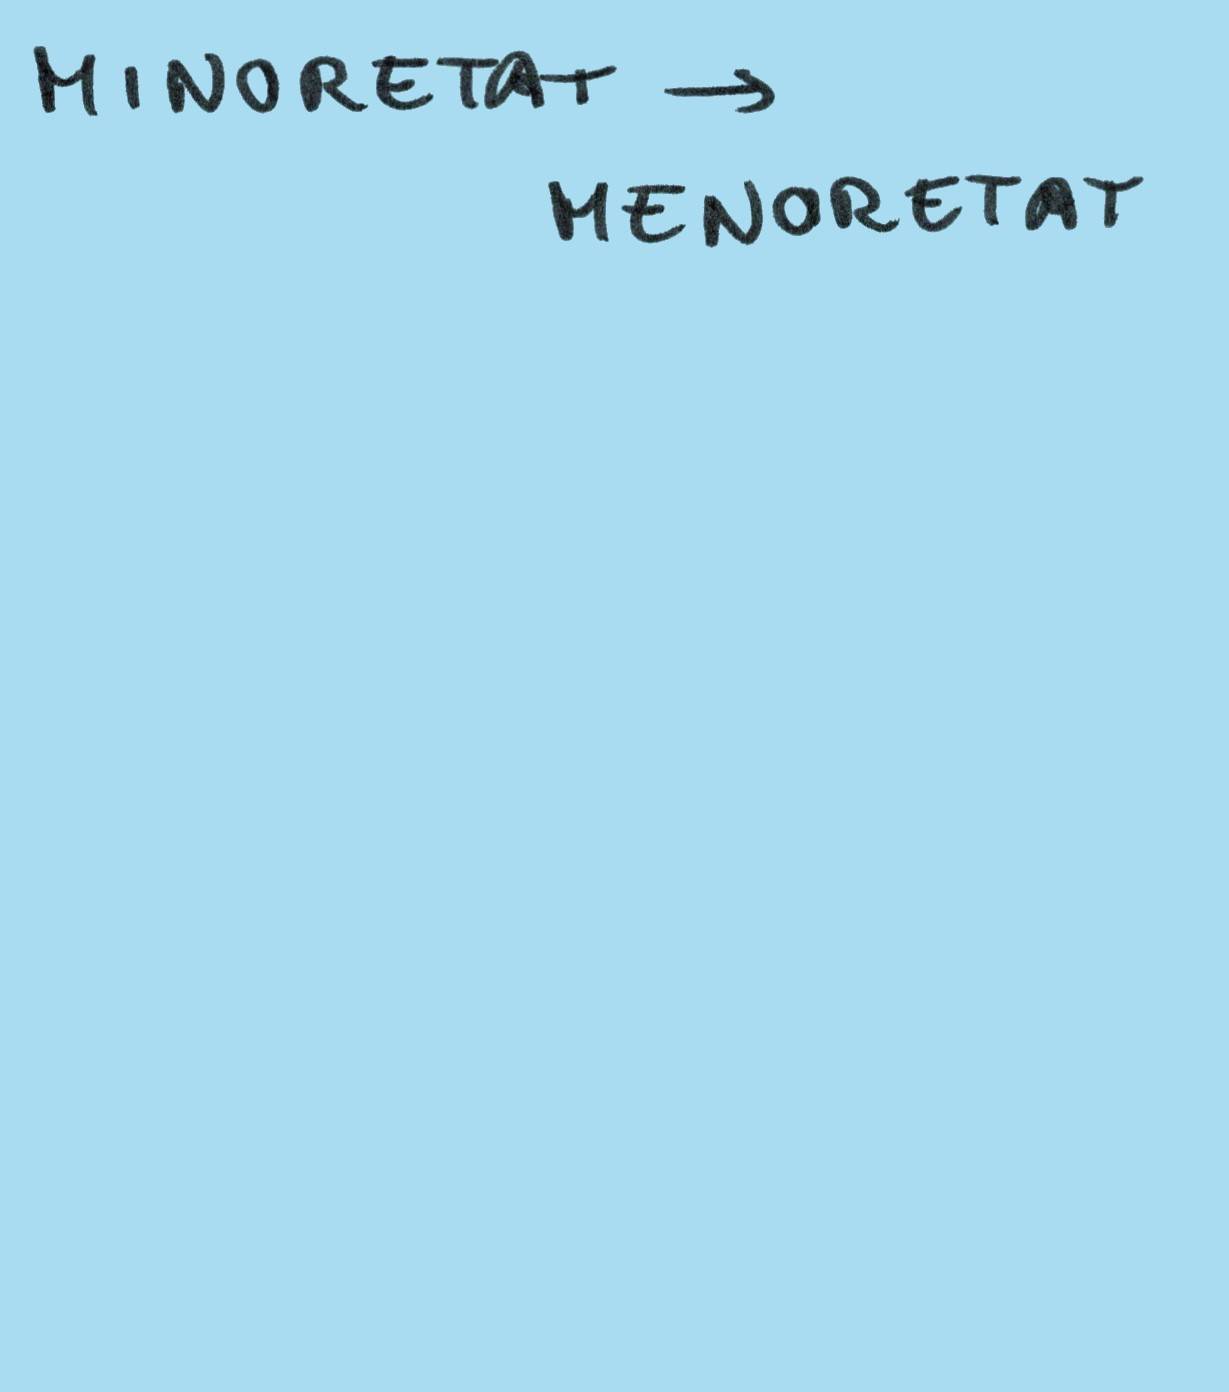 MINORETAT →
MENORETAT